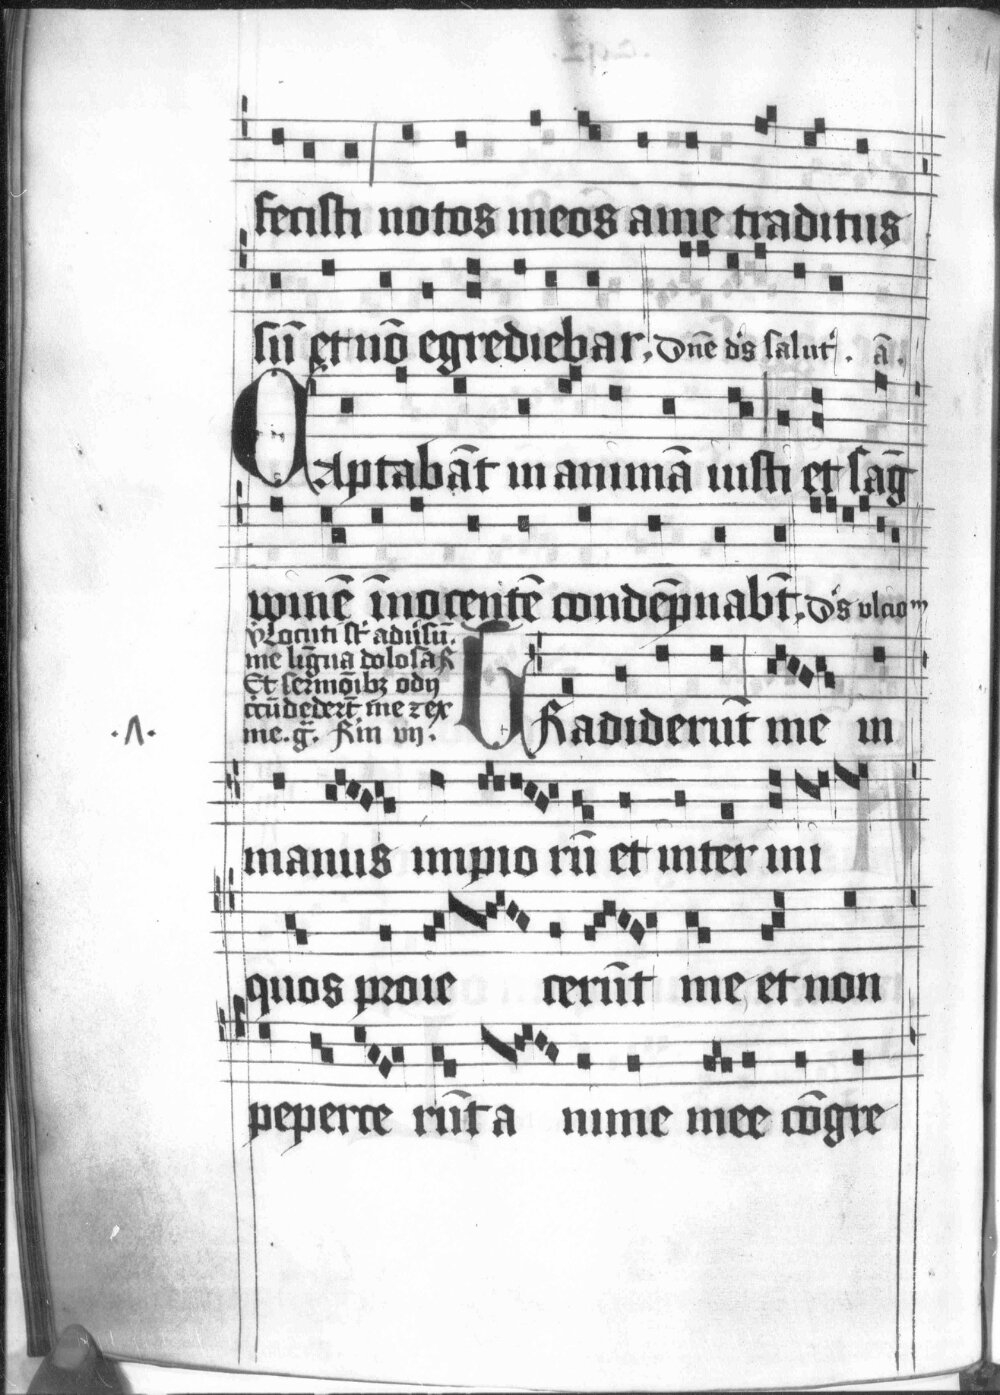 fecisti notos meōs a me traditus
sū et nō egrediebar. Dn̄e d̓s salut᷒. ā.
Captabāt in animā iusti et sāg
winē īnocentē condēpnabt̄. D̓s vlcioⁿ
℣ Locuti st̄ adūsū.
me lingua dolosa ℟
Et sermōibꝫ odij
ccūdedert̄ me ⁊ ex
me. ḡ. ℟ in vij.
TRadiderūt me in
manus impio rū et inter imi
quos proie cerūt me et non
peperce rūt a nime mee cōgre
.Λ.